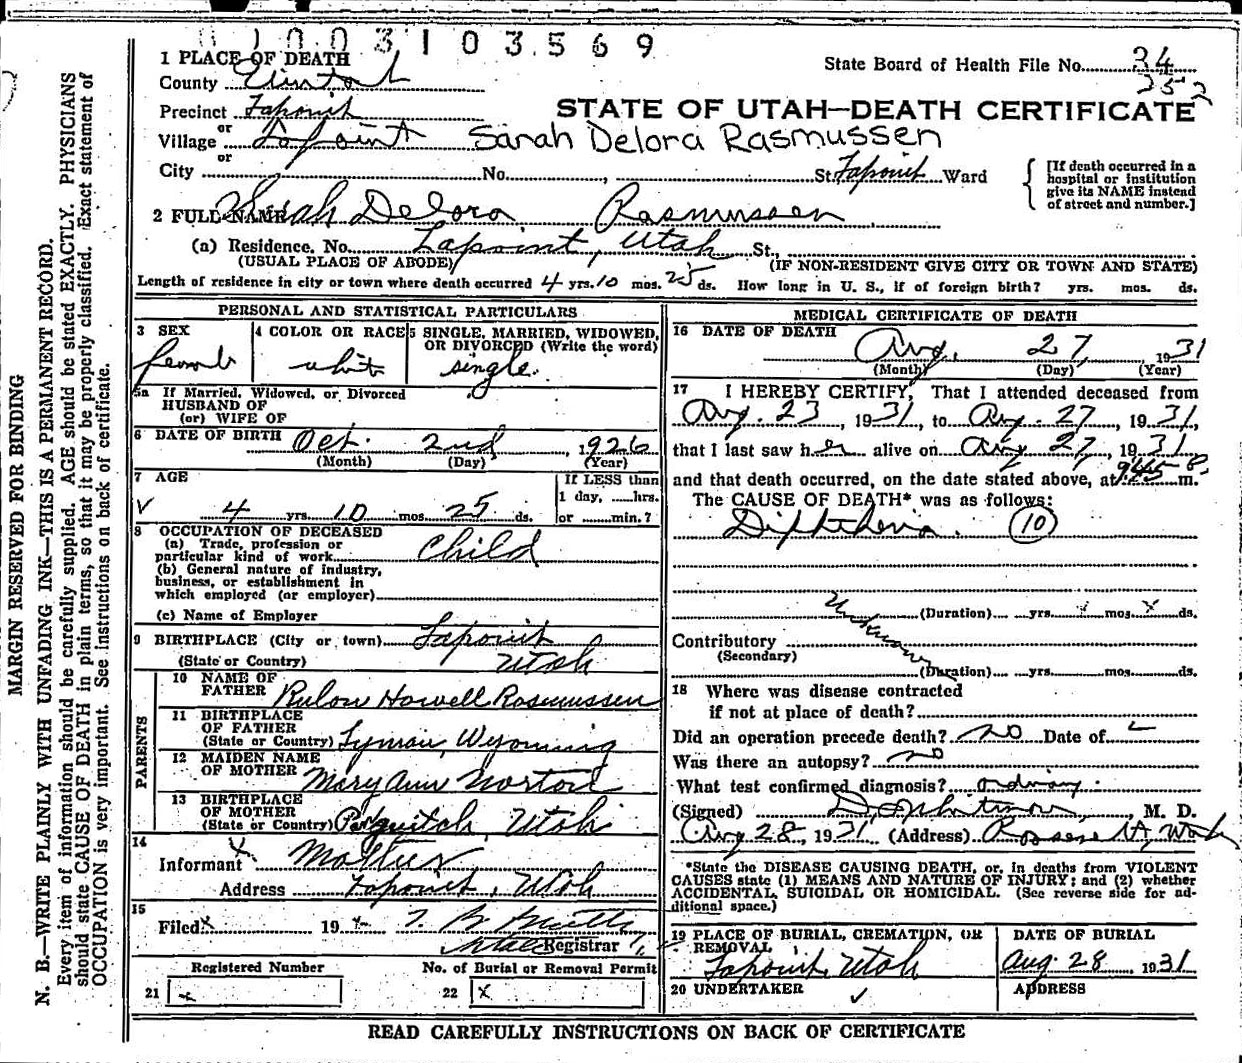 1003103569
1 PLACE OF DEATH
State Board of Health File No. 34
252
County Uintah
Precinct Lapoint
STATE OF UTAH—DEATH CERTIFICATE
or
Village Lapoint Sarah Delora Rasmussen
or
City No. , St. Lapoint Ward
[If death occurred in a hospital or institution give its NAME instead of street and number.]
2 FULL NAME Sarah Delora Rasmussen
(a) Residence. No. Lapoint, Utah St.,
(USUAL PLACE OF ABODE) (IF NON-RESIDENT GIVE CITY OR TOWN AND STATE)
Length of residence in city or town where death occurred 4 yrs. 10 mos. 25 ds. How long in U. S., if of foreign birth? yrs. mos. ds.
PERSONAL AND STATISTICAL PARTICULARS
3 SEX 4 COLOR OR RACE 5 SINGLE, MARRIED, WIDOWED,
OR DIVORCED (Write the word)
female white single
5a If Married, Widowed, or Divorced
HUSBAND OF
(or) WIFE OF
6 DATE OF BIRTH Oct. 2nd, 1926
(Month) (Day) (Year)
7 AGE If LESS than
1 day, ......hrs.
4 yrs. 10 mos. 25 ds. or ........min.?
8 OCCUPATION OF DECEASED
(a) Trade, profession or
particular kind of work Child
(b) General nature of industry,
business, or establishment in
which employed (or employer)
(c) Name of Employer
9 BIRTHPLACE (City or town) Lapoint
(State or Country) Utah
PARENTS
10 NAME OF
FATHER Rulon Howell Rasmussen
11 BIRTHPLACE
OF FATHER
(State or Country) Lyman, Wyoming
12 MAIDEN NAME
OF MOTHER Mary Ann Norton
13 BIRTHPLACE
OF MOTHER
(State or Country) Panguitch, Utah
14
Informant Mother
Address Lapoint, Utah
15
Filed x 19 x
Registrar
Registered Number No. of Burial or Removal Permit
21 x 22 x
MEDICAL CERTIFICATE OF DEATH
16 DATE OF DEATH
Aug. 27, 1931
(Month) (Day) (Year)
17 I HEREBY CERTIFY, That I attended deceased from
Aug. 23, 1931, to Aug. 27, 1931,
that I last saw her alive on Aug 27, 1931
and that death occurred, on the date stated above, at 9:45 P. m.
The CAUSE OF DEATH* was as follows:
Diphtheria. 10
(Duration) yrs. mos. x ds.
Unknown
Contributory
(Secondary)
(Duration) yrs. mos. ds.
18 Where was disease contracted
if not at place of death?
Did an operation precede death? no Date of
Was there an autopsy? no
What test confirmed diagnosis? ordinary
(Signed) , M. D.
Aug 28, 1931 (Address) Roosevelt, Utah
*State the DISEASE CAUSING DEATH, or, in deaths from VIOLENT
CAUSES state (1) MEANS AND NATURE OF INJURY; and (2) whether
ACCIDENTAL, SUICIDAL OR HOMICIDAL. (See reverse side for ad-
ditional space.)
19 PLACE OF BURIAL, CREMATION, OR
REMOVAL
Lapoint, Utah
DATE OF BURIAL
Aug. 28 1931
20 UNDERTAKER ADDRESS
READ CAREFULLY INSTRUCTIONS ON BACK OF CERTIFICATE
MARGIN RESERVED FOR BINDING
N. B.—WRITE PLAINLY WITH UNFADING INK—THIS IS A PERMANENT RECORD.
Every item of information should be carefully supplied. AGE should be stated EXACTLY. PHYSICIANS
should state CAUSE OF DEATH in plain terms, so that it may be properly classified. Exact statement of
OCCUPATION is very important. See instructions on back of certificate.